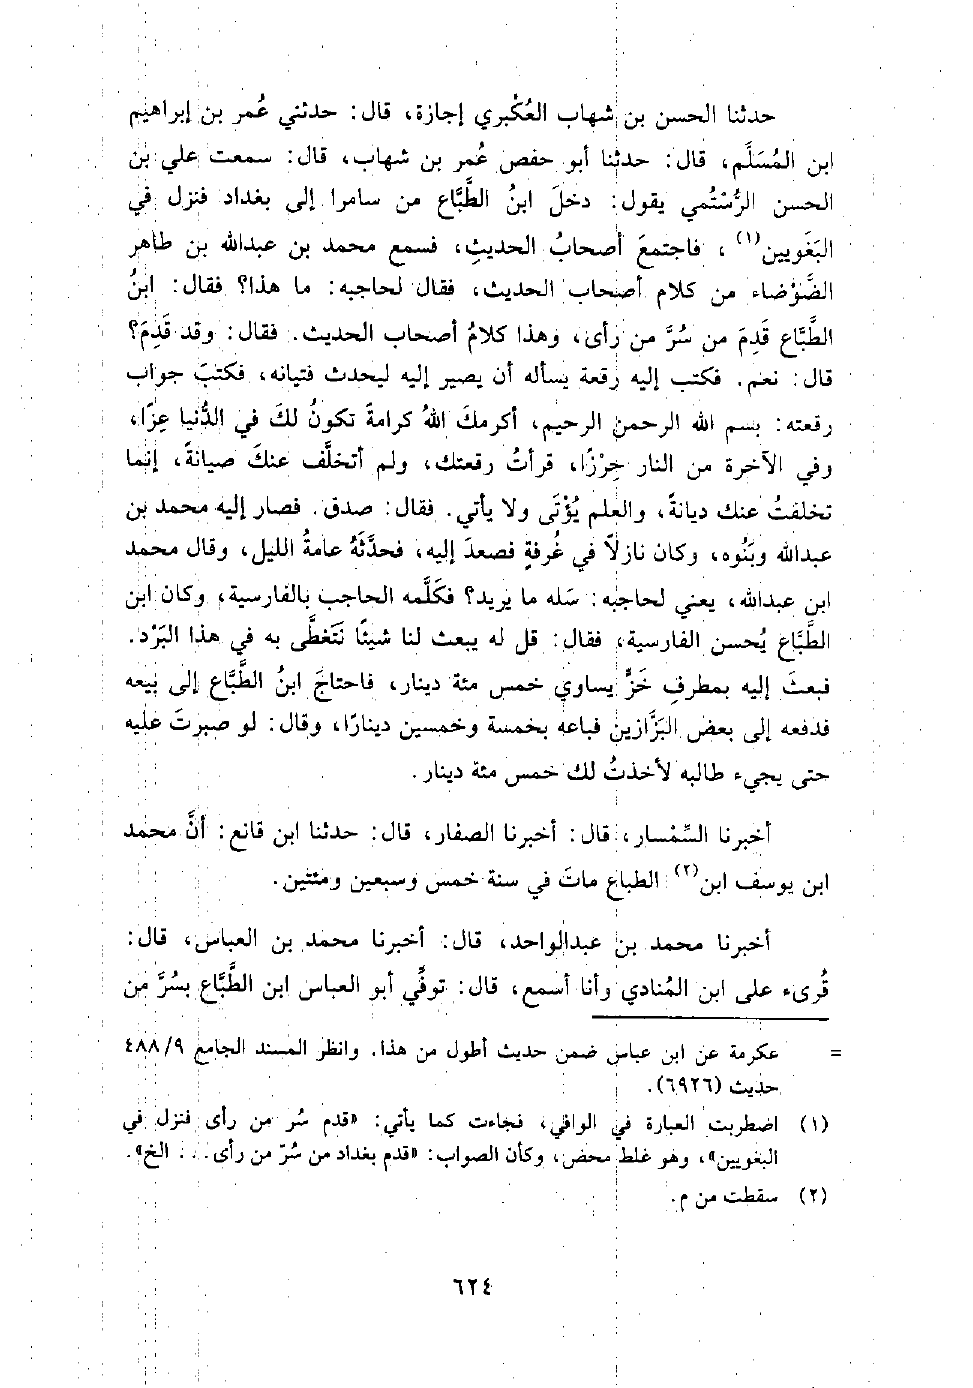 حدثنا الحسن بن شهاب العُكْبري إجازة، قال: حدثني عُمر بن إبراهيم
ابن المُسَلَّم، قال: حدثنا أبو حفص عُمر بن شهاب، قال: سمعت علي بن
الحسن الرُّسْتُمي يقول: دخلَ ابنُ الطَّبَّاع من سامرا إلى بغداد فنزل في
البَغَويين(١)، فاجتمعَ أصحابُ الحديثِ، فسمع محمد بن عبدالله بن طاهر
الضَّوْضاء من كلام أصحاب الحديث، فقال لحاجبه: ما هذا؟ فقال: ابنُ
الطَّبَّاع قَدِمَ من سُرَّ من رأى، وهذا كلامُ أصحاب الحديث. فقال: وقد قَدِمَ؟
قال: نعم. فكتب إليه رقعة يسأله أن يصير إليه ليحدث فتيانه، فكتبَ جواب
رقعته: بسم الله الرحمن الرحيم، أكرمكَ اللهُ كرامةً تكونُ لكَ في الدُّنيا عِزًّا،
وفي الآخرة من النار حِرْزًا، قرأتُ رقعتك، ولم أتخلَّف عنكَ صيانةً، إنما
تخلفتُ عنك ديانةً، والعلم يُؤْتَى ولا يأتي. فقال: صدق. فصار إليه محمد بن
عبدالله وبَنُوه، وكان نازلاً في غُرفةٍ فصعدَ إليه، فحدَّثَهُ عامةُ الليل، وقال محمد
ابن عبدالله، يعني لحاجبه: سَله ما يريد؟ فكَلَّمه الحاجب بالفارسية، وكان ابن
الطَّبَّاع يُحسن الفارسية، فقال: قل له يبعث لنا شيئًا نَتَغطَّى به في هذا البَرْد.
فبعثَ إليه بمطرفِ خَزٍّ يساوي خمس مئة دينار، فاحتاجَ ابنُ الطَّبَّاع إلى بَيعه
فدفعه إلى بعض البَزَّازين فباعه بخمسة وخمسين دينارًا، وقال: لو صبرتَ عليه
حتى يجيء طالبه لأخذتُ لك خمس مئة دينار.
أخبرنا السِّمْسار، قال: أخبرنا الصفار، قال: حدثنا ابن قانع: أنَّ محمد
ابن يوسف ابن(٢) الطباع ماتَ في سنة خمس وسبعين ومئتين.
أخبرنا محمد بن عبدالواحد، قال: أخبرنا محمد بن العباس، قال:
قُرىء على ابن المُنادي وأنا أسمع، قال: توفِّي أبو العباس ابن الطَّبَّاع بسُرَّ من
= عكرمة عن ابن عباس ضمن حديث أطول من هذا. وانظر المسند الجامع ٩/ ٤٨٨
حديث (٦٩٢٦).
(١) اضطربت العبارة في الوافي، فجاءت كما يأتي: «قدم سُر من رأى فنزل في
البغويين»، وهو غلط محض، وكأن الصواب: «قدم بغداد من سُرّ من رأى... الخ».
(٢) سقطت من م.
٦٢٤